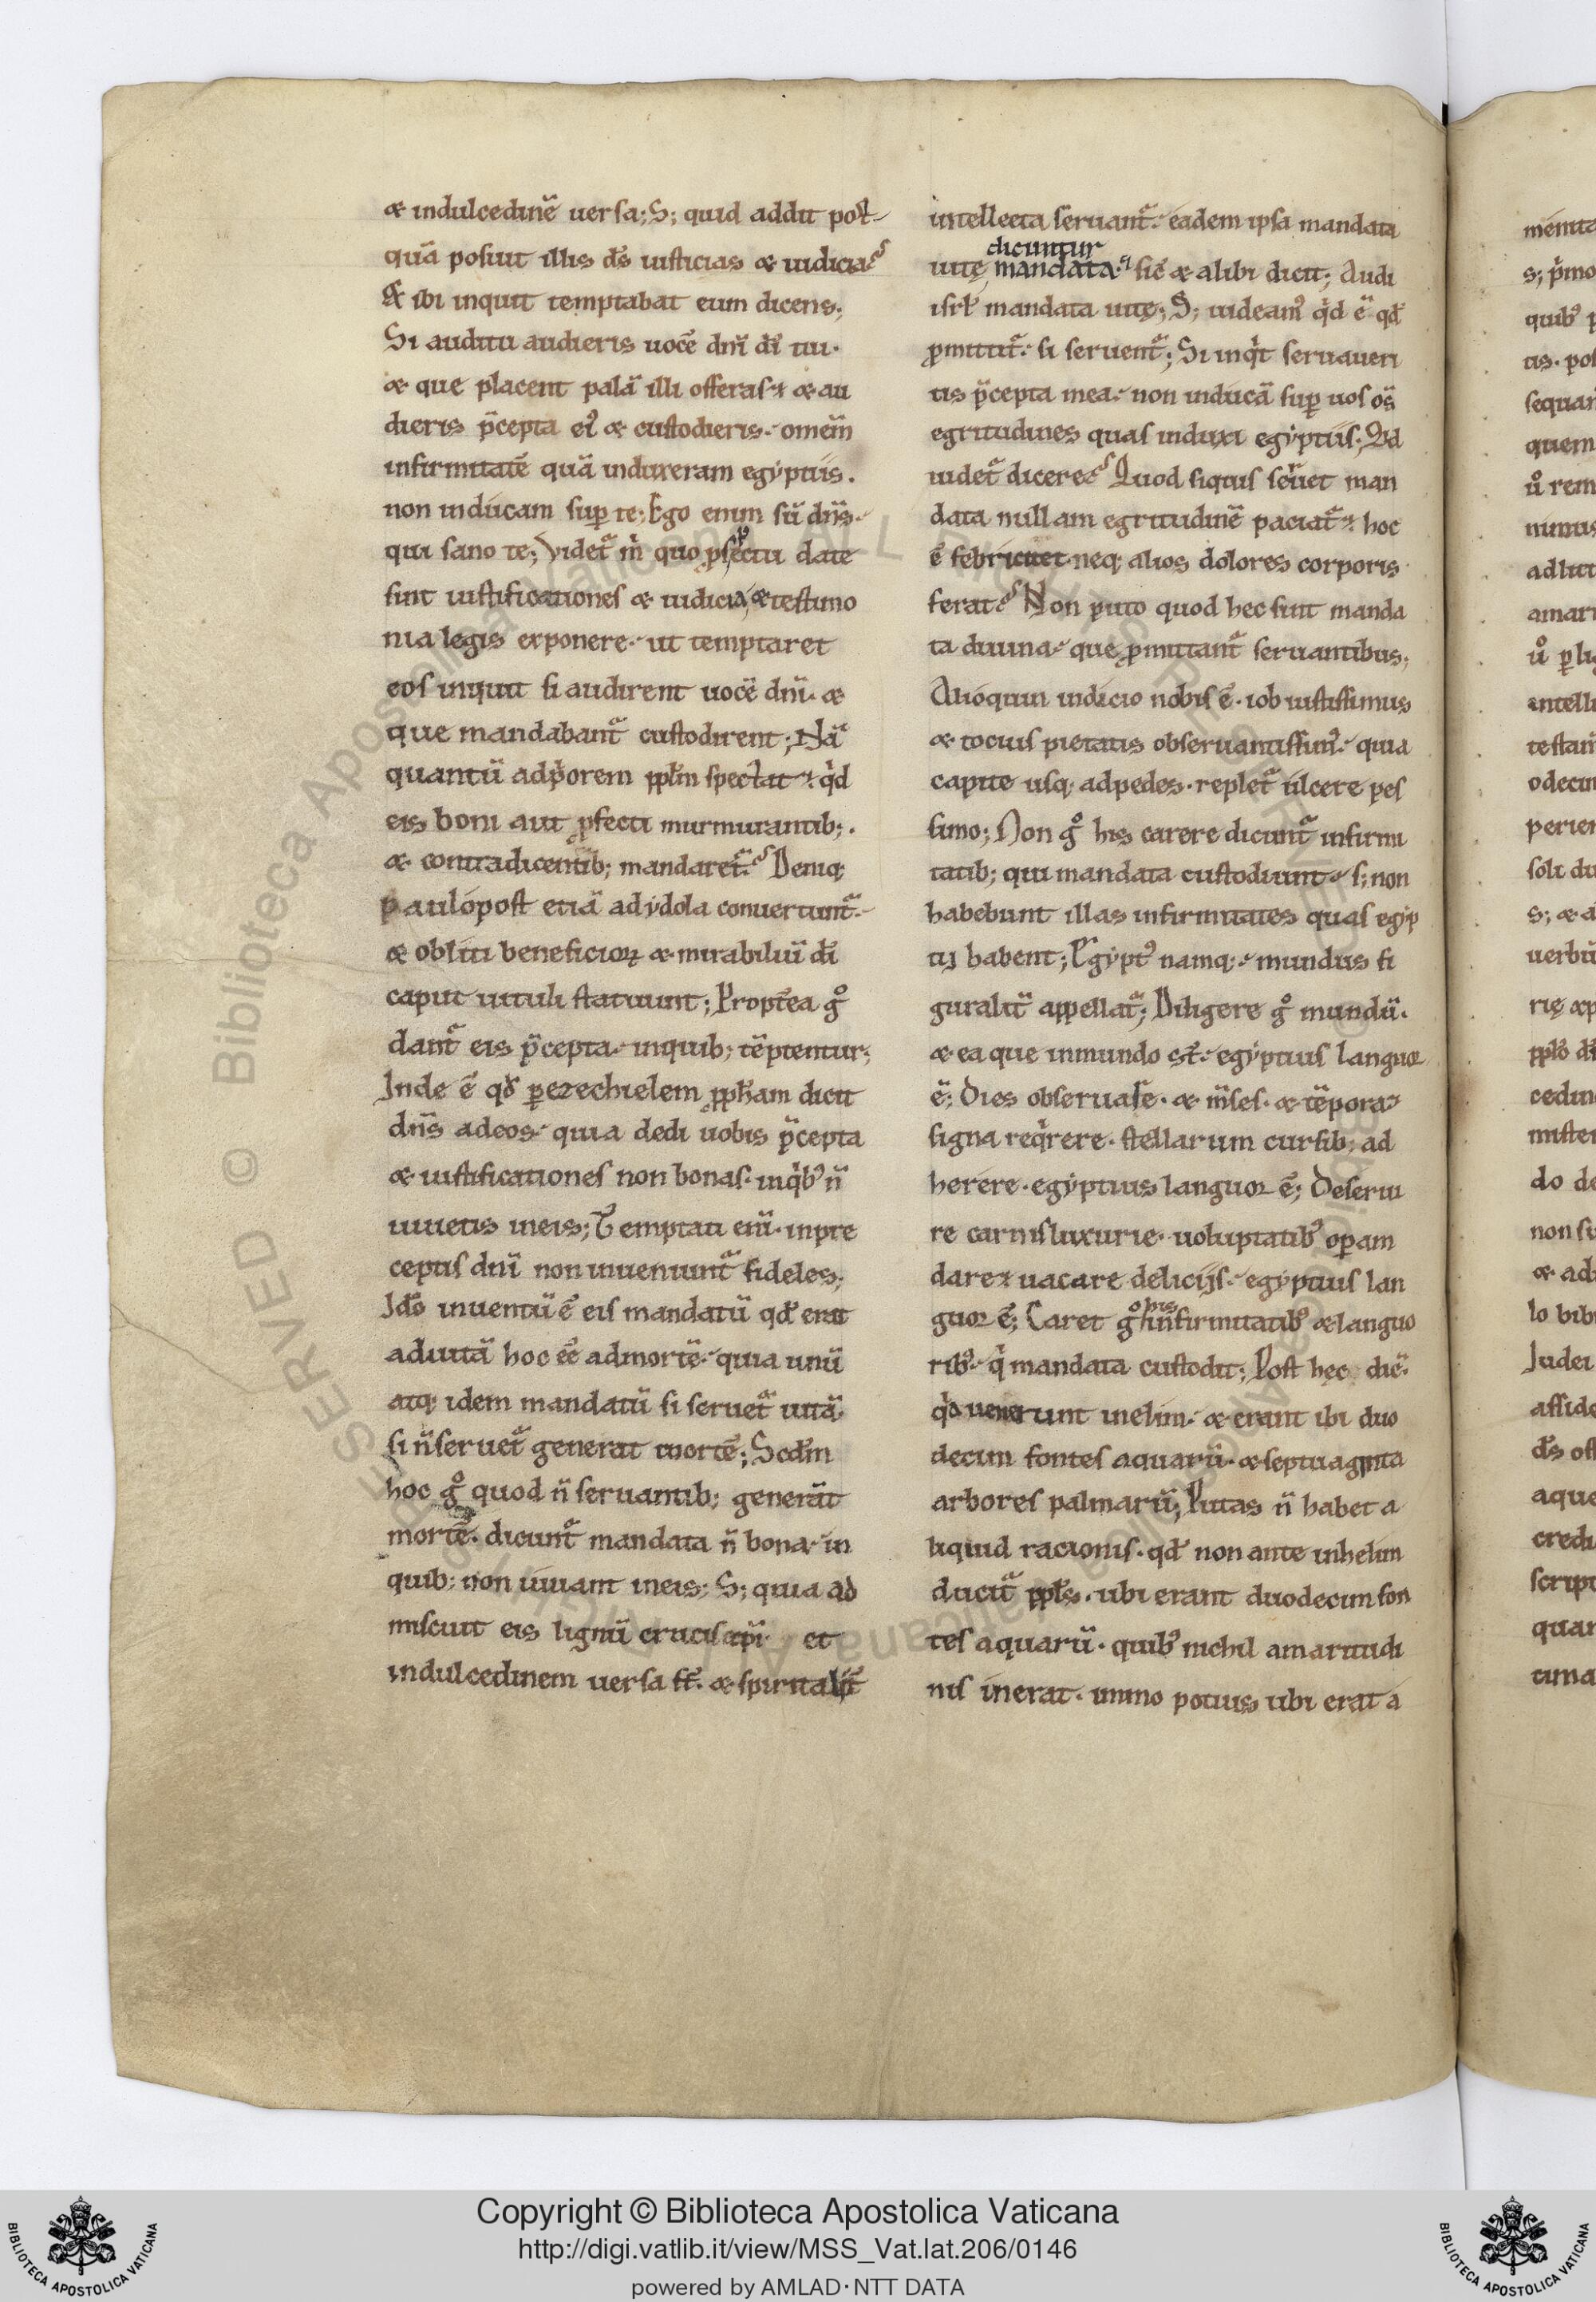 & indulcedinē uersa; S; quid addit post
quā posuit illis ds̄ iusticias & iudicia?
Et ibi inquit temptabat eum dicens;
Si auditu audieris uocē dnī dī tui·
& que placent palā illi offeras· & au
dieris p̄cepta eiꝰ & custodieris· omēm
infirmitatē quā induxeram egyptiis.
non inducam suꝑ te; Ego enim sū dn̄s·
qui sano te; Videt̄ m̄ quo ꝓspectu date
sint iustificationes & iudicia, & testimo
nia legis exponere· ut temptaret
eos inquit si audirent uocē dnī· &
que mandabant̄ custodirent; Nā
quantū adpͥorem ppl̄m spectat· qͥd
eis boni aut ꝓfecti murmurantib;.
& contradicentib; mandaret̄? Deniq;
paulopost etiā adydola conuertunt̄·
& obliti beneficioꝝ & mirabiliū dī
caput uituli statuunt; Propt̄ea gͦ
dant̄ eis p̄cepta· inquib; tēptentur;
Inde ē qd̄ ꝑezechielem ꝓph̄am dicit
dn̄s adeos· quia dedi uobis p̄cepta
& iustificationes non bonas· inqͥbꝰ n̄
uiuetis ineis; Temptati enī· inpre
ceptis dnī non inueniunt̄ fideles;
Idō inuentū ē eis mandatū qd̄ erat
aduitā hoc eē admortē· quia unū
atq; idem mandatū si seruet̄ uitā·
si n̄ seruet̄ generat mortē; Scd̄m
hoc gͦ quod n̄ seruantib; generāt
mortē· dicunt̄ mandata n̄ bona· in
quib; non uiuant ineis; S; quia ad
miscuit eis lignū crucis xp̄i et
indulcedinem uersa st̄· & spiritalit̄
intellecta seruant̄· eadem ipsa mandata
dicuntur
uitę mandata· sic̄ & alibi dicit; Audi
isrl̄ mandata uitę; S; uideamꝰ qͥd ē qd̄
ꝓmittit̄· si seruent̄; Si inqͥt seruaueri
tis p̄cepta mea· non inducā suꝑ uos om̄s
egritudines quas induxi egyptiis; Qd
uidet̄ dicere? Quod siquis seruet man
data nullam egritudinē paciat̄· hoc
ē febricitet neq; alios dolores corporis
ferat? Non puto quod hec sint manda
ta diuina· que ꝓmittant̄ seruantibus;
Alioquin indicio nobis ē· iob iustissimus
& tocius pietatis obseruantissimꝰ· quia
capite usq; adpedes· replet̄ ulcere pes
simo; Non gͦ his carere dicunt̄ infirmi
tatib; qui mandata custodiunt· s; non
habebunt illas infirmitates quas egyp
tij habent; Egyptꝰ namq;· mundus fi
guralit̄ appellat̄; Diligere gͦ mundū·
& ea que inmundo st̄· egyptius languor
ē; Dies obseruare· & m̄ses· & tēpora·
signa reqͥrere· stellarum cursib; ad
herere· egyptius languor ē; Deserui
re carnis luxurie· uoluptatibꝰ oꝑam
dare· uacare delicijs· egyptius lan
his
guor ē; Caret gͦ infirmitatibꝰ & languo
ribꝰ· qͥ mandata custodit; Post hęc dic̄·
qd̄ uenerunt inelim· & erant ibi duo
decim fontes aquarū· & septuaginta
arbores palmarū; Putas n̄ habet a
liquid racionis· qd̄ non ante inhelim
ducit̄ ppl̄s· ubi erant duodecim fon
tes aquarū· quibꝰ nichil amaritudi
nis inerat· immo potius ubi erat a
Copyright © Biblioteca Apostolica Vaticana
http://digi.vatlib.it/view/MSS_Vat.lat.206/0146
powered by AMLAD·NTT DATA
BIBLIOTECA APOSTOLICA VATICANA
BIBLIOTECA APOSTOLICA VATICANA